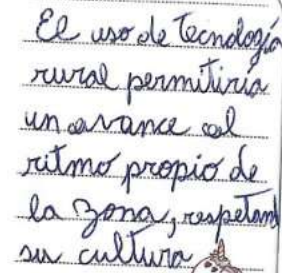 El uso de Tecnología
rural permitiría
un avance al
ritmo propio de
la zona, respetand
su cultura